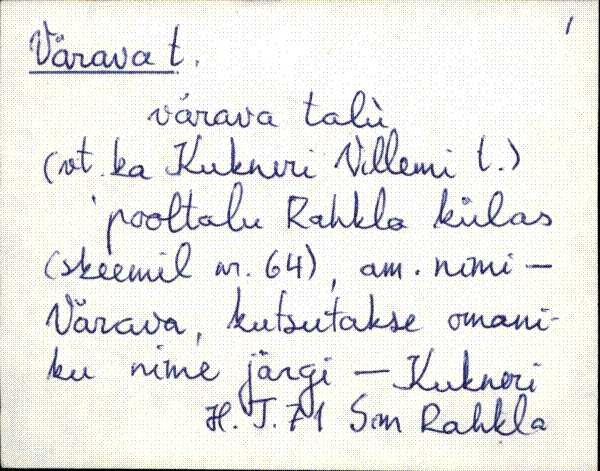 1
Värava t.
värava talù
(vt. ka Kukneri Villemi t.)
'pooltalu Rahkla külas
(skeemil nr. 64), am. nimi —
Värava, kutsutakse omani-
ku nime järgi — Kukneri
H. J. 71 Sim Rahkla